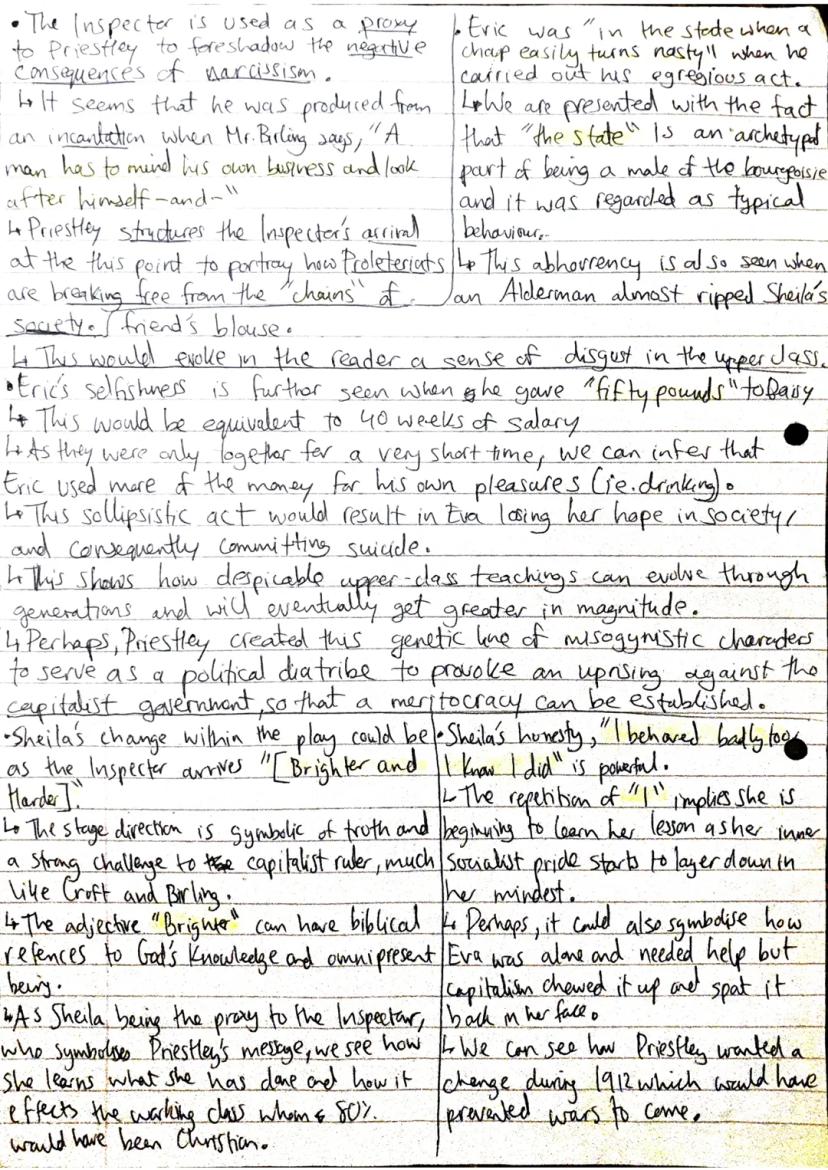 • The Inspector is used as a proxy
to Priestley to foreshadow the negative
consequences of narcissism.
↳ It seems that he was produced from
an incantation when Mr. Birling says, "A
man has to mind his own business and look
after himself-and-"
↳ Priestley structures the Inspector's arrival
at the this point to portray how Proleteriats
are breaking free from the "chains" of
society.
• Eric was "in the state when a
chap easily turns nasty" when he
carried out his egregious act.
↳ We are presented with the fact
that "the state" is an archetypal
part of being a male of the bourgeoisie
and it was regarded as typical
behaviour.
↳ This abhorrency is also seen when
an Alderman almost ripped Sheila's
friend's blouse.
↳ This would evoke in the reader a sense of disgust in the upper class.
• Eric's selfishness is further seen when he gave "fifty pounds" to Daisy
↳ This would be equivalent to 40 weeks of salary
↳ As they were only together for a very short time, we can infer that
Eric used more of the money for his own pleasures (ie. drinking).
↳ This sollipsistic act would result in Eva losing her hope in society,
and consequently committing suicide.
↳ This shows how despicable upper-class teachings can evolve through
generations and will eventually get greater in magnitude.
↳ Perhaps, Priestley created this genetic line of misogynistic characters
to serve as a political diatribe to provoke an uprising against the
capitalist government, so that a meritocracy can be established.
• Sheila's change within the play could be
as the Inspector arrives "[Brighter and
Harder]".
↳ The stage direction is symbolic of truth and
a strong challenge to capitalist ruler, much
like Croft and Birling.
↳ The adjective "Brighter" can have biblical
refences to God's knowledge and omnipresent
being.
↳ As Sheila, being the proxy to the Inspector,
who symbolises Priestley's message, we see how
she learns what she has done and how it
effects the working class whom 80%
would have been Christian.
• Sheila's honesty, "I behaved badly too
I know I did" is powerful.
↳ The repetition of "I" implies she is
beginning to learn her lesson as her inner
Socialist pride starts to layer down in
her mindest.
↳ Perhaps, it could also symbolise how
Eva was alone and needed help but
capitalism chewed it up and spat it
back in her face.
↳ We can see how Priestley wanted a
change during 1912 which would have
prevented wars to come.